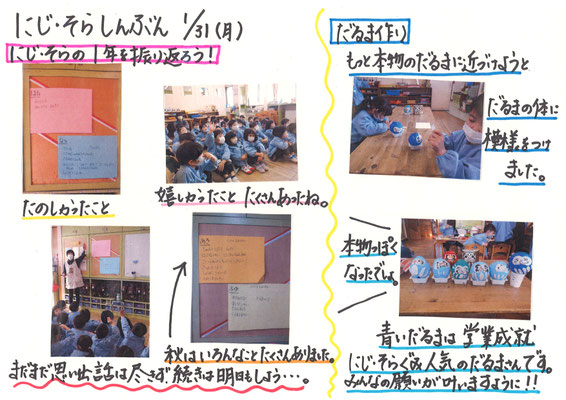 にじ・そらしんぶん 1/31(月)
にじ・そらの1年を振り返ろう!
たのしかったこと
嬉しかったこと たくさんあったね。
秋はいろんなことたくさんありました。
まだまだ思い出話は尽きず続きは明日もしよう…。
だるま作り
もっと本物のだるまに近づけようと
だるまの体に
模様をつけ
ました。
本物っぽく
なったでしょ。
青いだるまは学業成就
にじ・そらぐみ人気のだるまさんです。
みんなの願いが叶いますように!!